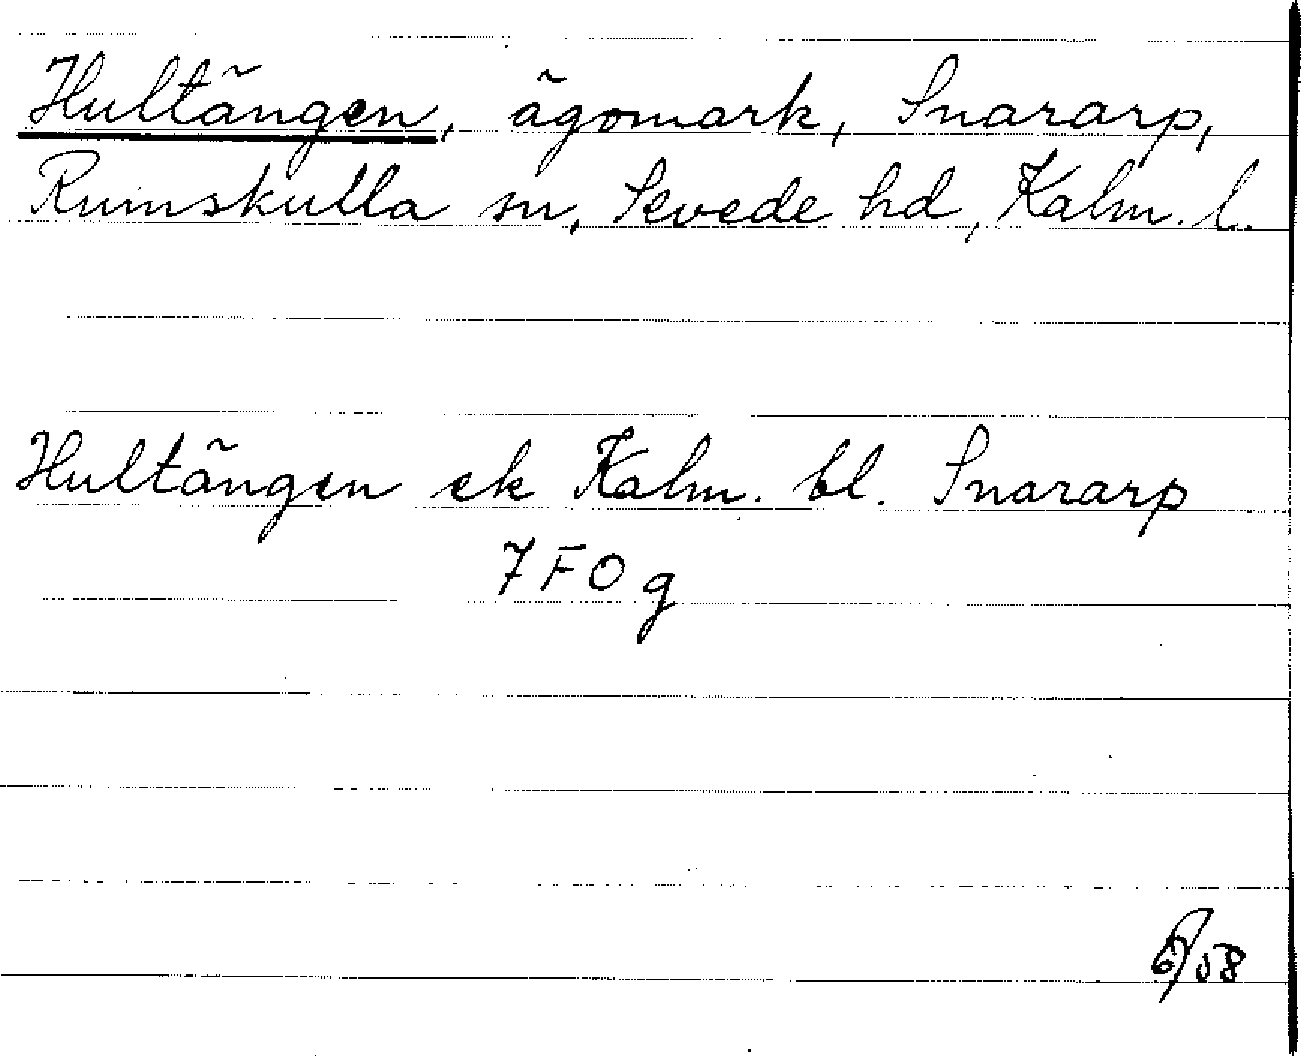 Hultängen, ägomark, Snararp,
Rumskulla sn, Sevede hd, Kalm. l.
Hultängen ek Kalm. bl. Snararp
7 F O g